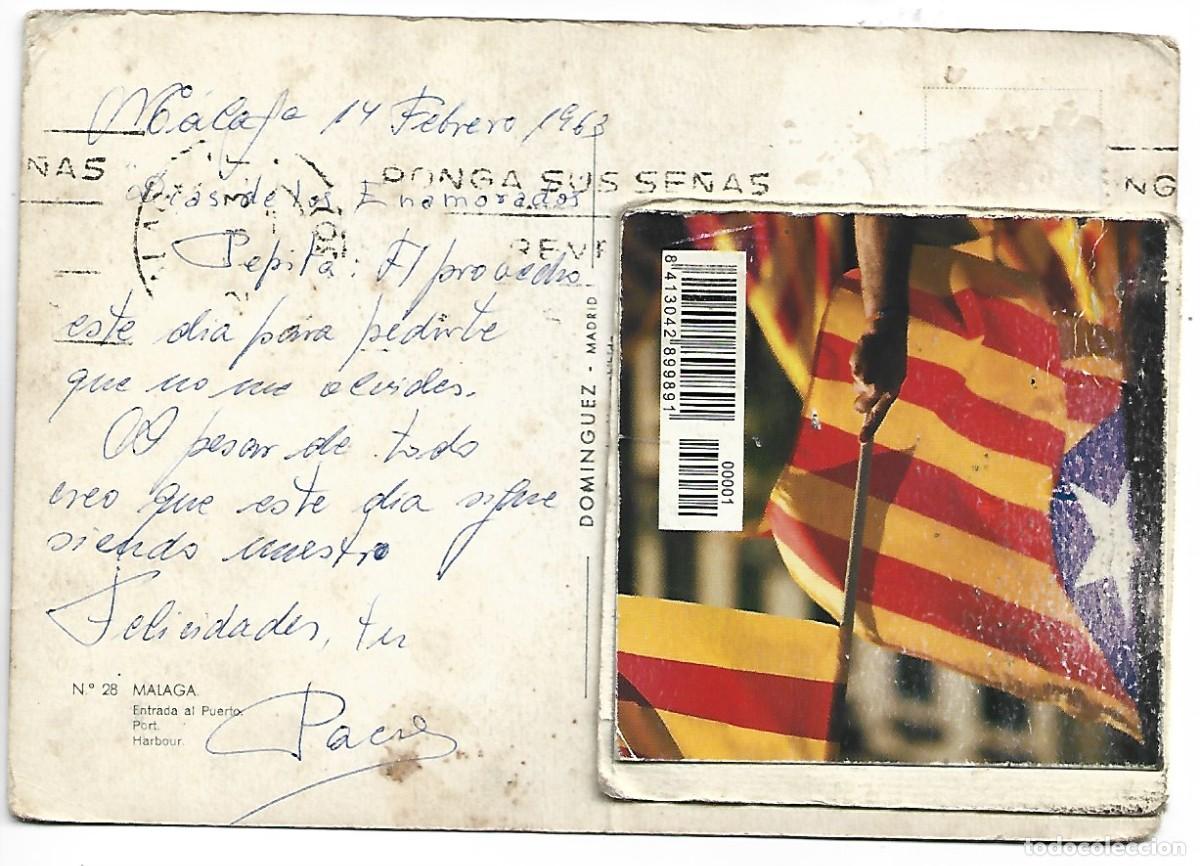 Málaga 14 Febrero 1963
ÑAS
PONGA SUS SEÑAS
NG
Dias de los Enamorados
REVE
Pepita: Aprovecho
este dia para pedirte
que no me olvides.
A pesar de todo
creo que este dia sigue
siendo nuestro
Felicidades, tu
Paco
N.º 28 MALAGA.
Entrada al Puerto.
Port.
Harbour.
DOMINGUEZ - MADRID
8413042899891
00001
todocoleccion